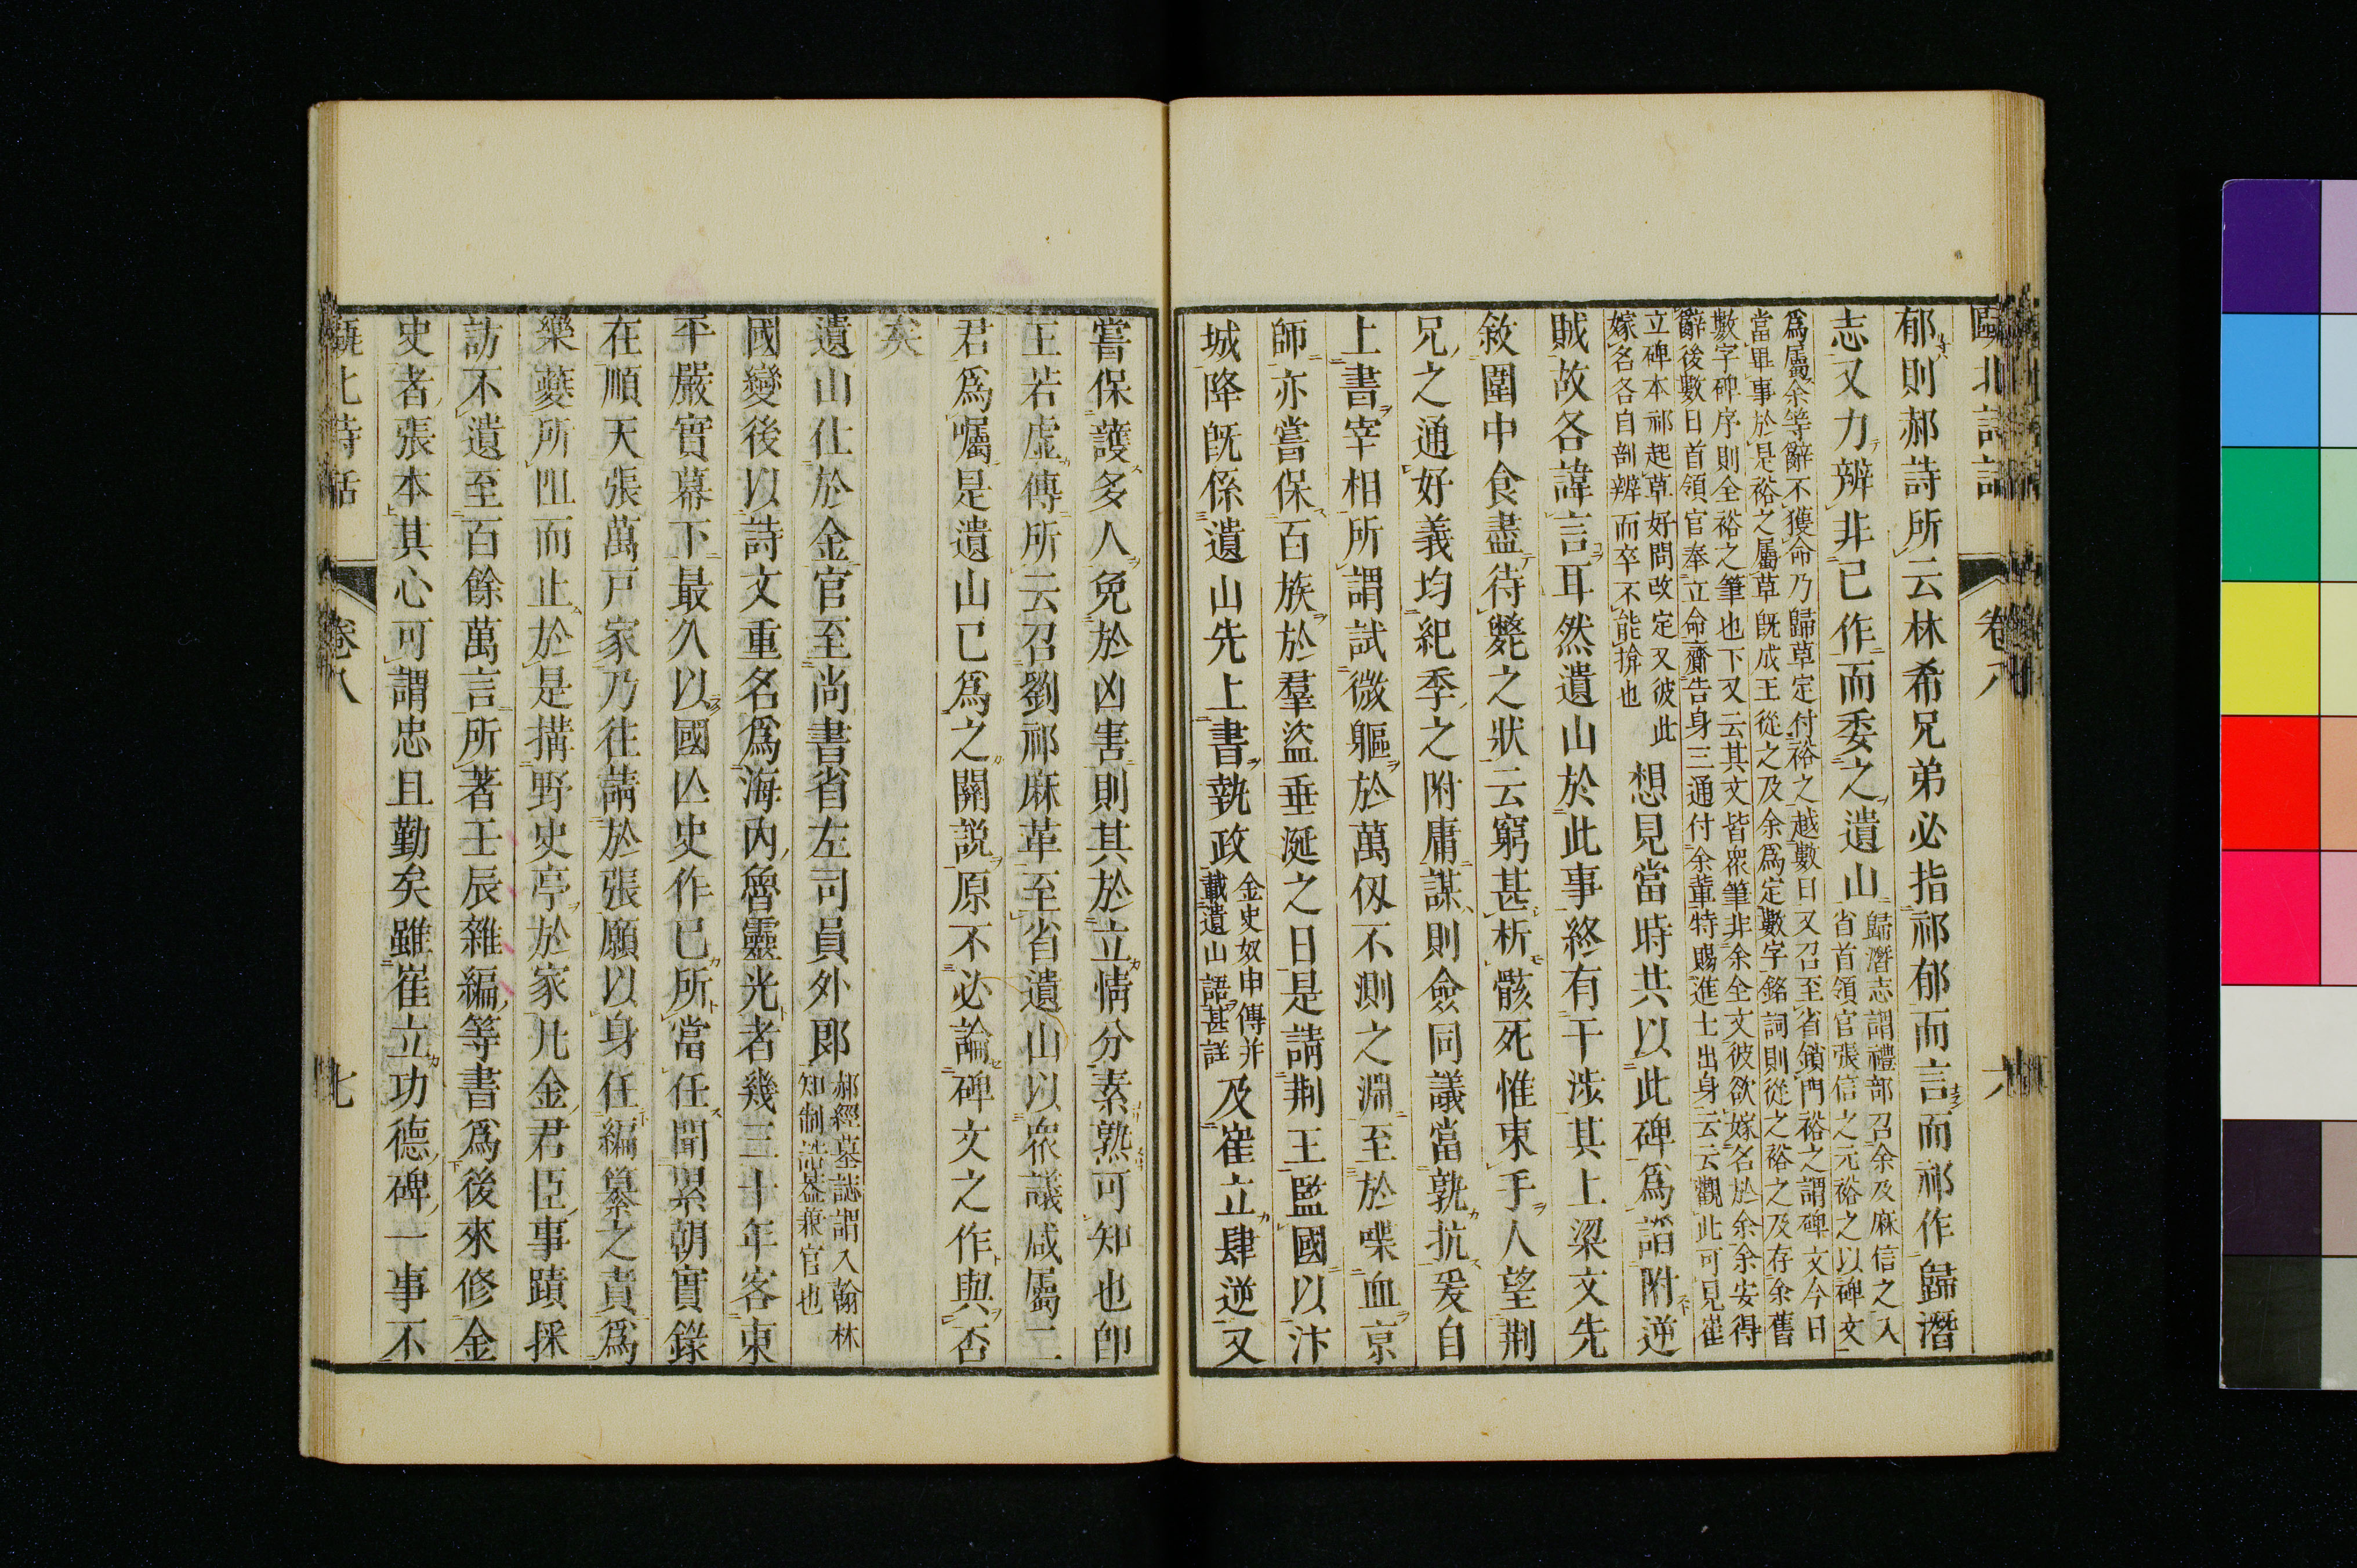 甌北詩話
卷八
六
郁則郝詩所云林希兄弟必指祁郁而言而祁作歸潛
志又力辨非已作而委之遺山
歸潛志謂禮部召余及麻信之入
省首領官張信之元裕之以碑文
爲屬余等辭不獲命乃歸草定付裕之越數日又召至省鎖門裕之謂碑文今日
當畢事於是裕之屬草既成王從之及余爲定數字銘詞則從之裕之及存余舊
數字碑序則全裕之筆也下又云其文皆衆筆非余全文彼欲嫁名於余余安得
辭後數日首領官奉立命齎告身三通付余輩特賜進士出身云云觀此可見崔
立碑本祁起草好問改定又彼此
嫁名各自剖辨而卒不能揜也
想見當時共以此碑爲謟附逆
賊故各諱言耳然遺山於此事終有干涉其上梁文先
敘圍中食盡待斃之狀云窮甚析骸死惟束手人望荆
兄之通好義均紀季之附庸謀則僉同議當孰抗爰自
上書宰相所謂試微軀於萬仭不測之淵至於喋血京
師亦嘗保百族於羣盜垂涎之日是請荆王監國以汴
城降既係遺山先上書執政
金史奴申傳并
載遺山語甚詳
及崔立肆逆又
嘗保護多人免於凶害則其於立情分素熟可知也卽
王若虛傳所云召劉祁麻革至省遺山以衆議咸屬二
君爲囑是遺山已爲之關説原不必論碑文之作與否
矣
遺山仕於金官至尚書省左司員外郎
郝經墓誌謂入翰林
知制誥蓋兼官也
國變後以詩文重名爲海內魯靈光者幾三十年客東
平嚴實幕下最久以國亾史作已所當任聞累朝實錄
在順天張萬戸家乃往請於張願以身任編纂之責爲
樂夔所阻而止於是搆野史亭於家凡金君臣事蹟採
訪不遺至百餘萬言所著壬辰雜編等書爲後來修金
史者張本其心可謂忠且勤矣雖崔立功德碑一事不
甌北詩話
卷八
七